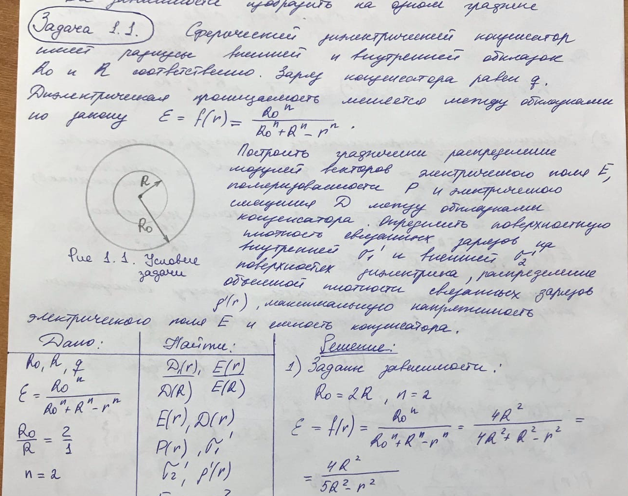 зависимости изобразить на одном графике
Задача 1.1. Сферический диэлектрический конденсатор
имеет радиусы внешней и внутренней обкладок
R₀ и R соответственно. Заряд конденсатора равен q.
Диэлектрическая проницаемость меняется между обкладками
по закону ε = f(r) = R₀ⁿ / (R₀ⁿ + Rⁿ - rⁿ).
Построить графически распределение
модулей векторов электрического поля E,
поляризованности P и электрического
смещения D между обкладками
конденсатора. Определить поверхностную
плотность связанных зарядов на
внутренней σ₁' и внешней σ₂'
поверхностях диэлектрика, распределение
объемной плотности связанных зарядов
ρ'(r), максимальную напряженность
электрического поля E и емкость конденсатора.
R
R₀
Рис 1.1. Условие
задачи
Дано:
R₀, R, q
ε = R₀ⁿ / (R₀ⁿ + Rⁿ - rⁿ)
R₀/R = 2/1
n = 2
Найти:
D(r), E(r)
D(R) E(R)
E(r), D(r)
P(r), σ₁'
σ₂', ρ'(r)
Решение:
1) Задание зависимости:
R₀ = 2R, n = 2
ε = f(r) = R₀ⁿ / (R₀ⁿ + Rⁿ - rⁿ) = 4R² / (4R² + R² - r²) =
= 4R² / (5R² - r²)